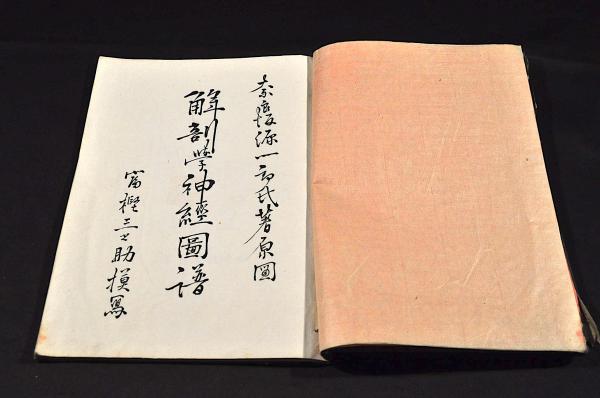 奈良坂源一郎氏著原圖
解剖學神經圖譜
富樫三之助摸寫